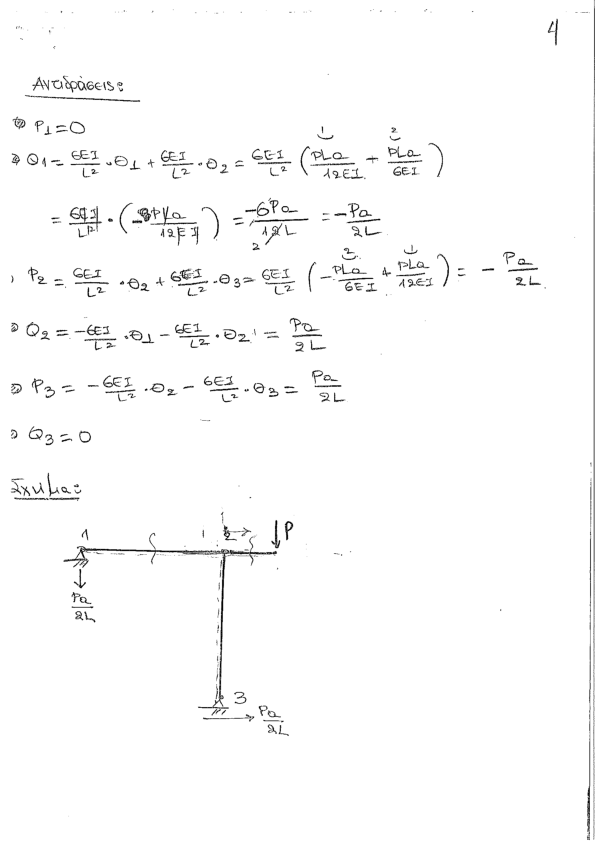 4
Αντιδράσεις:
P1=0
Q1 = 6EI/L² · θ1 + 6EI/L² · θ2 = 6EI/L² (PLa/12EI + PLa/6EI)
= 6EI/L² · (-3PLa/12EI) = -6Pa/12L = -Pa/2L
P2 = 6EI/L² · θ2 + 6EI/L² · θ3 = 6EI/L² (-PLa/6EI + PLa/12EI) = - Pa/2L
Q2 = -6EI/L² · θ1 - 6EI/L² · θ2 = Pa/2L
P3 = -6EI/L² · θ2 - 6EI/L² · θ3 = Pa/2L
Q3 = 0
Σχήμα:
1 2 P
Pa/2L
3
Pa/2L